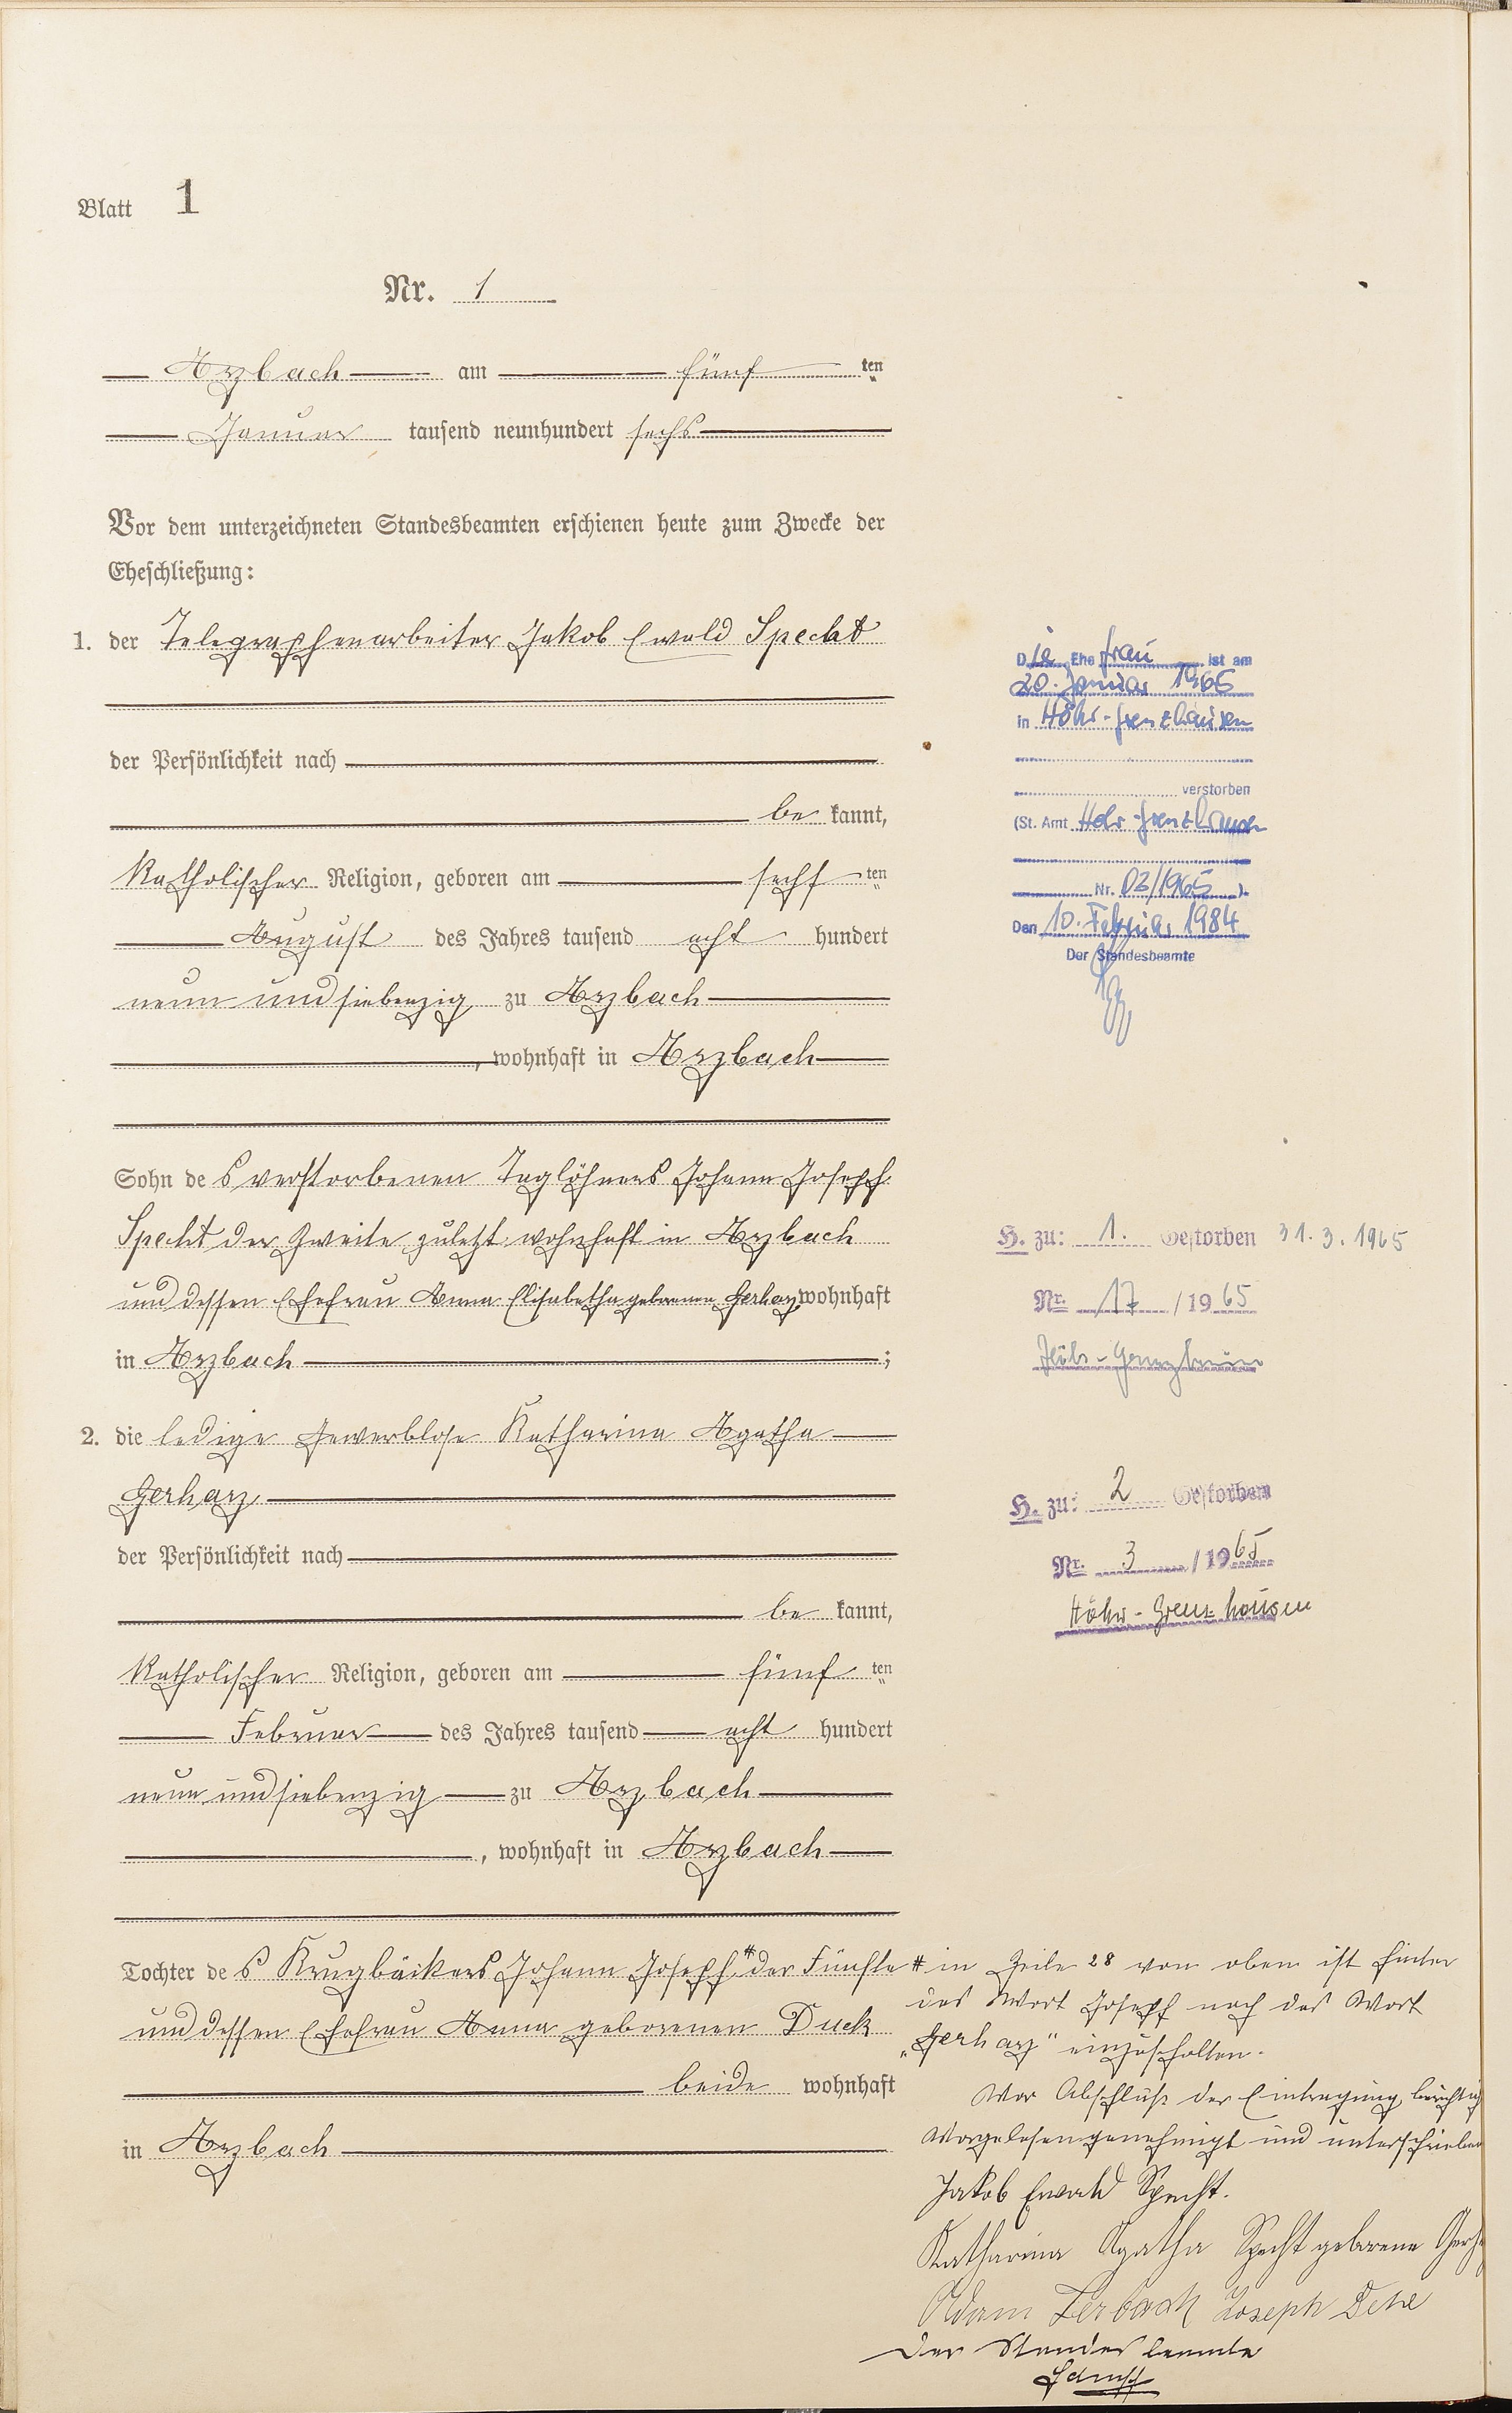 Blatt 1
Nr. 1
Arzbach am fünften
Januar tausend neunhundert sechs
Vor dem unterzeichneten Standesbeamten erschienen heute zum Zwecke der
Eheschließung:
1. der Telegraphenarbeiter Jakob Ewald Specht
der Persönlichkeit nach
bekannt,
Katholischer Religion, geboren am sechsten
August des Jahres tausend acht hundert
neun und siebenzig zu Arzbach
, wohnhaft in Arzbach
Sohn des verstorbenen Taglöhners Johann Joseph
Specht der Zweite zuletzt wohnhaft in Arzbach
und dessen Ehefrau Anna Elisabetha geborenen Gerharz wohnhaft
in Arzbach ;
2. die ledige Gewerblose Katharina Agatha
Gerharz
der Persönlichkeit nach
bekannt,
Katholischer Religion, geboren am fünften
Februar des Jahres tausend acht hundert
neun und siebenzig zu Arzbach
, wohnhaft in Arzbach
Tochter des Krugbäckers Johann Joseph # der Fünfte
und dessen Ehefrau Anna geborenen Duck
beide wohnhaft
in Arzbach
Die Ehefrau ist am
20. Januar 1965
in Höhr-Grenzhausen
verstorben
(St. Amt Höhr-Grenzhausen
Nr. 03/1965 ).
Den 10. Februar 1984
Der Standesbeamte
H. zu: 1. Gestorben 31.3.1965
Nr. 17 / 1965
Höhr-Grenzhausen
H. zu: 2 Gestorben
Nr. 3 / 1965
Höhr-Grenzhausen
# in Zeile 28 von oben ist hinter
das Wort Joseph noch das Wort
„Gerharz" einzuschalten.
Vor Abschluß der Eintragung berichtigt
Vorgelesen genehmigt und unterschrieben
Jakob Ewald Specht.
Katharina Agatha Specht geborene
Adam Joseph
Der Standesbeamte